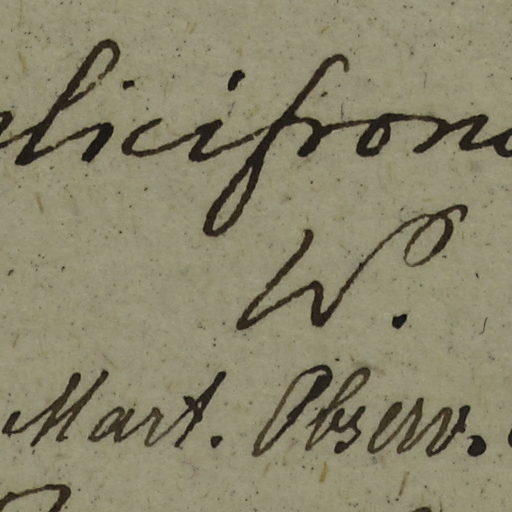 licifron
W.
Mart. Observ.